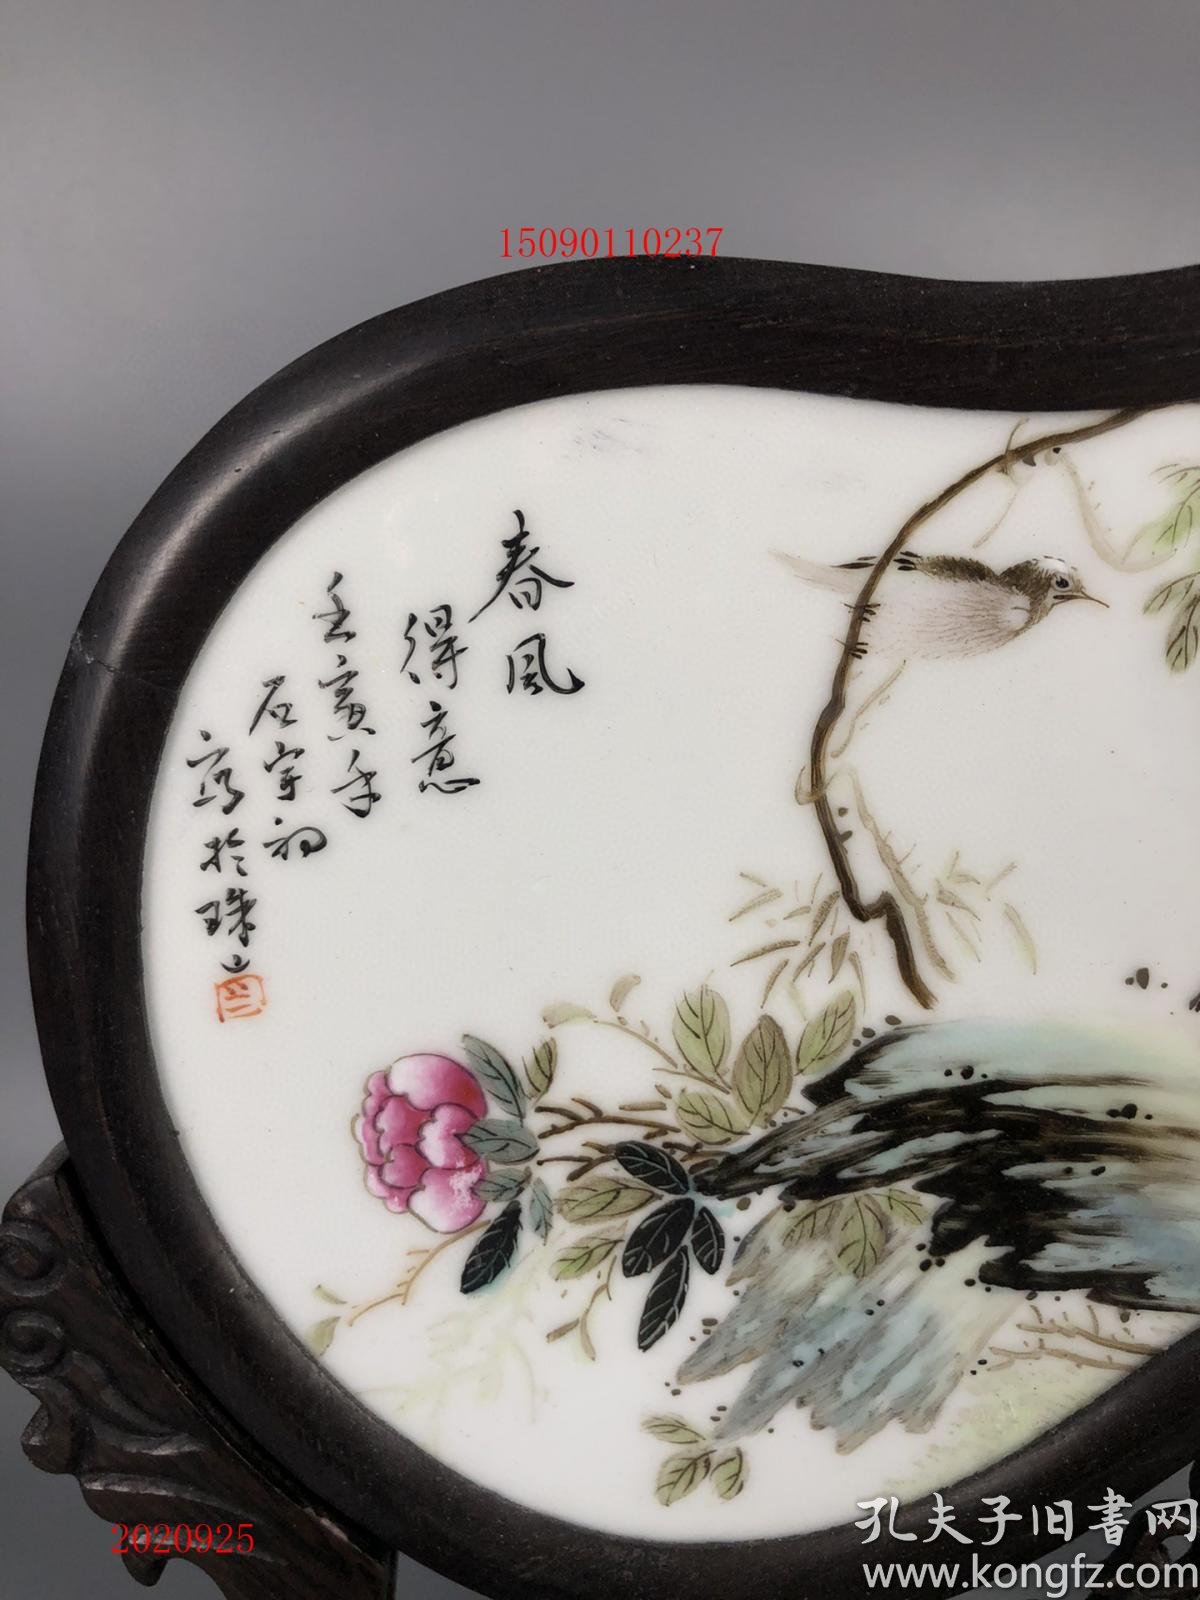 15090110237
春风
得意
壬寅年
石宇初
写於珠山
2020925
孔夫子旧书网
www.kongfz.com